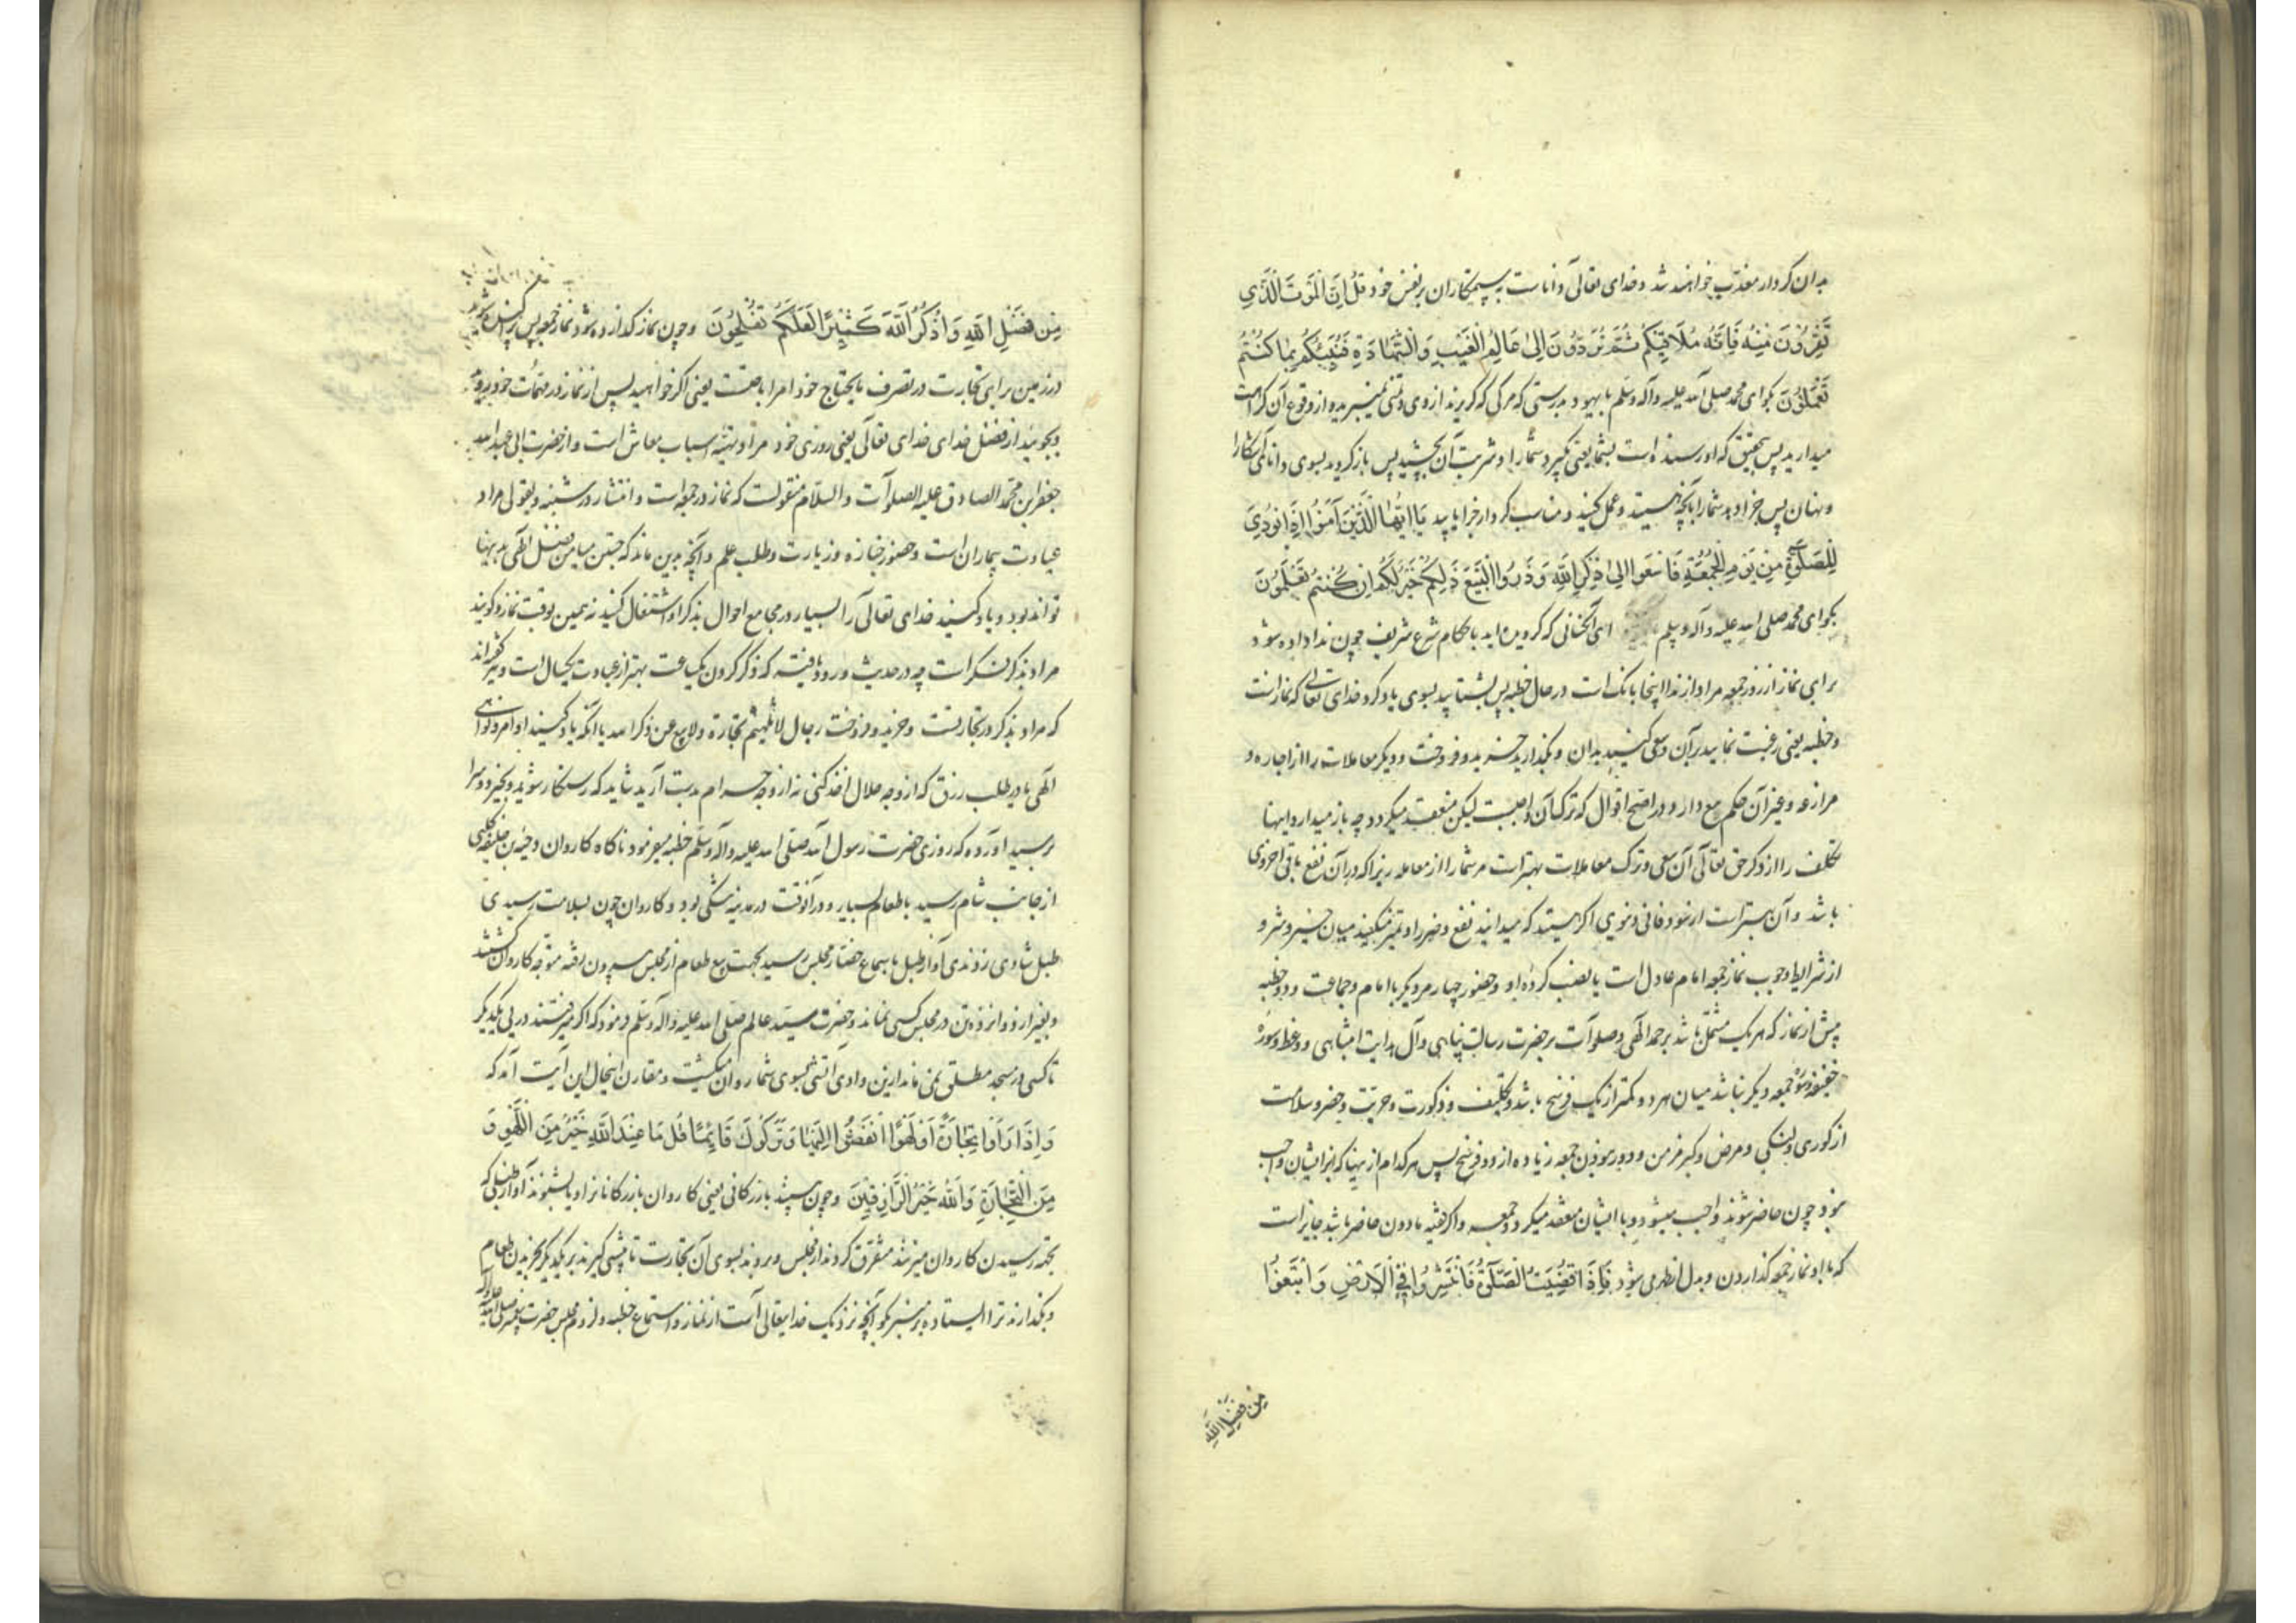 بدان کردار معذب خواهند شد و خدای تعالی داناست به ستمکاران بر نفس خود قُلْ اِنَّ الْمَوْتَ الَّذی
تَفِرُّونَ مِنْهُ فَاِنَّهُ مُلَاقِیکُمْ ثُمَّ تُرَدُّونَ اِلیٰ عَالِمِ الْغَیْبِ وَالشَّهَادَةِ فَیُنَبِّئُکُمْ بِمَا کُنْتُمْ
تَعْمَلُونَ بکو ای محمد صلی الله علیه وآله وسلم با یهود بدرستی که مرکی که کریزید از وی و تمنی نمیبرید و از وقوع آن کراهت
میدارید پس بتحقیق که او رسنده است بشما یعنی بکیرد شما را و شربت آن بچشید پس باز کردید بسوی دانای آشکارا
و نهان پس جزا دهد شما را بآنچه هستید و عمل کنید و مناسب کردار جزا یابید یَا اَیُّهَا الَّذِینَ آمَنُوا اِذَا نُودِیَ
لِلصَّلٰوةِ مِنْ یَوْمِ الْجُمُعَةِ فَاسْعَوْا اِلیٰ ذِکْرِ اللّٰهِ وَذَرُوا الْبَیْعَ ذٰلِکُمْ خَیْرٌ لَکُمْ اِنْ کُنْتُمْ تَعْلَمُونَ
بکو ای محمد صلی الله علیه وآله وسلم ای آنکسانی که کرویده اید باحکام شرع شریف چون ندا داده شود
برای نماز از روز جمعه مراد از ندا اینجا بانک است در حال خطبه پس بشتابید بسوی یاد کرد خدای تعالی که نماز است
و خطبه یعنی رغبت نمایید بر آن و سعی کنید بدان و بکذارید خرید و فروخت و دیکر معاملات را از اجاره و
مزارعه و غیر آن حکم بیع دارد و در اصح اقوال که ترک آن واجبست لیکن منعقد میکردد چه باز میدارد اینها
مکلف را از ذکر حق تعالی آن سعی و ترک معاملات بهتر است مر شما را از معامله زیرا که در آن نفع باقی اخروی
باشد و آن بهتر است از سود فانی دنیوی اکر هستید که میدانید نفع و ضرر را و تمیز میکنید میان خیر و شر و
از شرایط وجوب نماز جمعه امام عادل است یا نصب کرده او و حضور چهار مرد دیکر با امام و جماعت و دو خطبه
پیش از نماز که هر یک مشتمل باشد بر حمد الهی و صلوات بر حضرت رسالت پناهی و آل هدایت انتباهی و وعظ و سوره
خفیفه و جمعه دیکر نباشد میان هر دو کمتر از یک فرسخ باشد و تکلیف و ذکورت و حریت و حضر و سلامت
از کوری و لنکی و مرض و کبر مزمن و دور نبودن جمعه زیاده از دو فرسخ پس هر کدام از اینها که بر ایشان واجب
نبود چون حاضر شوند واجب میشود و با ایشان منعقد میکردد جمعه و اکر فقیه مادون حاضر باشد جایز است
که با او نماز جمعه کذاردن و بدل از ظهر می شود فَاِذَا قُضِیَتِ الصَّلٰوةُ فَانْتَشِرُوا فِی الْاَرْضِ وَابْتَغُوا
مِنْ فَضْلِ اللّٰهِ
مِنْ فَضْلِ اللّٰهِ وَاذْکُرُوا اللّٰهَ کَثِیرًا لَعَلَّکُمْ تُفْلِحُونَ و چون نماز کذارده شود نماز جمعه پس پراکنده شوید
در زمین برای تجارت و تصرف مایحتاج خود امر اباحتست یعنی اکر خواهید پس از نماز در مهمات خود بروید
و بجویید از فضل خدای خدای تعالی یعنی روزی خود مراد تهیه اسباب معاش است و از حضرت ابی عبدالله
جعفر ابن محمد الصادق علیه الصلوات والسلام منقولست که نماز در جمعه است و انتشار در شنبه و بقولی مراد
عیادت بیماران است و حضور جنازه و زیارت و طلب علم و آنچه بدین ماند که جستن میامن فضل الهی بدینها
تواند بود و یاد کنید خدای تعالی را بسیار در مجامع احوال بذکر او اشتغال کنید نه همین بوقت نماز و کویند
مراد بذکر فکر است چه در حدیث ورود یافته که فکر کردن یک ساعت بهتر از عبادت یکسال است و نیز کفته اند
که مراد ذکر در تجارتست و خرید و فروخت رجال لا تلهیهم تجارة ولا بیع عن ذکر الله یا آنکه یاد کنید اوامر و نواهی
الهی را در طلب رزق که از وجه حلال اخذ کنی نه از وجه حرام بدست آرید شاید که رستکار شوید و بخیر دو سرا
برسید آورده که روزی حضرت رسول الله صلی الله علیه وآله وسلم خطبه میفرمود ناکاه کاروان دحیه بن خلیفه کلبی
از جانب شام رسید با طعام بسیار و در آنوقت در مدینه تنکی بود و کاروان چون بسلامت رسیدی
طبل شادی زدندی آواز طبل باسماع حضار مجلس رسید بجهت بیع طعام از مجلس بیرون رفته متوجه کاروان کشتند
و بغیر از دوازده تن در مجلس کسی نماند و حضرت سید عالم صلی الله علیه وآله وسلم فرمود که اکر میرفتند در پی یکدیکر
تا کسی در مسجد مطلق نمی ماند از این وادی آتشی بسوی شما روان میکشت و مقارن اینحال این آیت آمد که
وَاِذَا رَاَوْا تِجَارَةً اَوْ لَهْوًا انْفَضُّوا اِلَیْهَا وَتَرَکُوكَ قَائِمًا قُلْ مَا عِنْدَ اللّٰهِ خَیْرٌ مِنَ اللَّهْوِ وَ
مِنَ التِّجَارَةِ وَاللّٰهُ خَیْرُ الرَّازِقِینَ و چون ببینند بازرکانی یعنی کاروان بازرکانان را و یا بشنوند آواز طبلی که
بجهة رسیدن کاروان میزنند متفرق کردند از مجلس و بروند بسوی آن تجارت تا پیشی کیرند بر یکدیکر بخریدن طعام
و بکذارند ترا ایستاده بر منبر بکو آنچه نزدیک خدایتعالی است از نماز و استماع خطبه و لزوم مجلس حضرت پیغمبر صلی الله علیه وآله